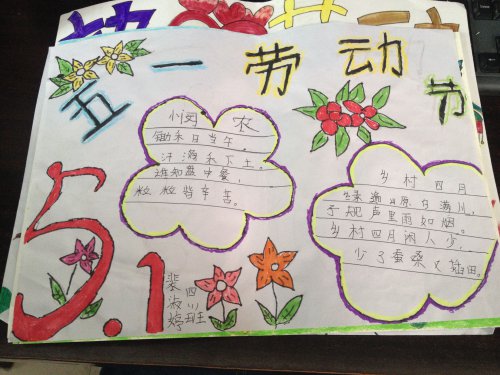 五一劳动节
悯 农
锄禾日当午。
汗滴禾下土。
谁知盘中餐，
粒粒皆辛苦。
乡村四月
绿遍山原白满川，
子规声里雨如烟。
乡村四月闲人少，
少了蚕桑又插田。
5.1